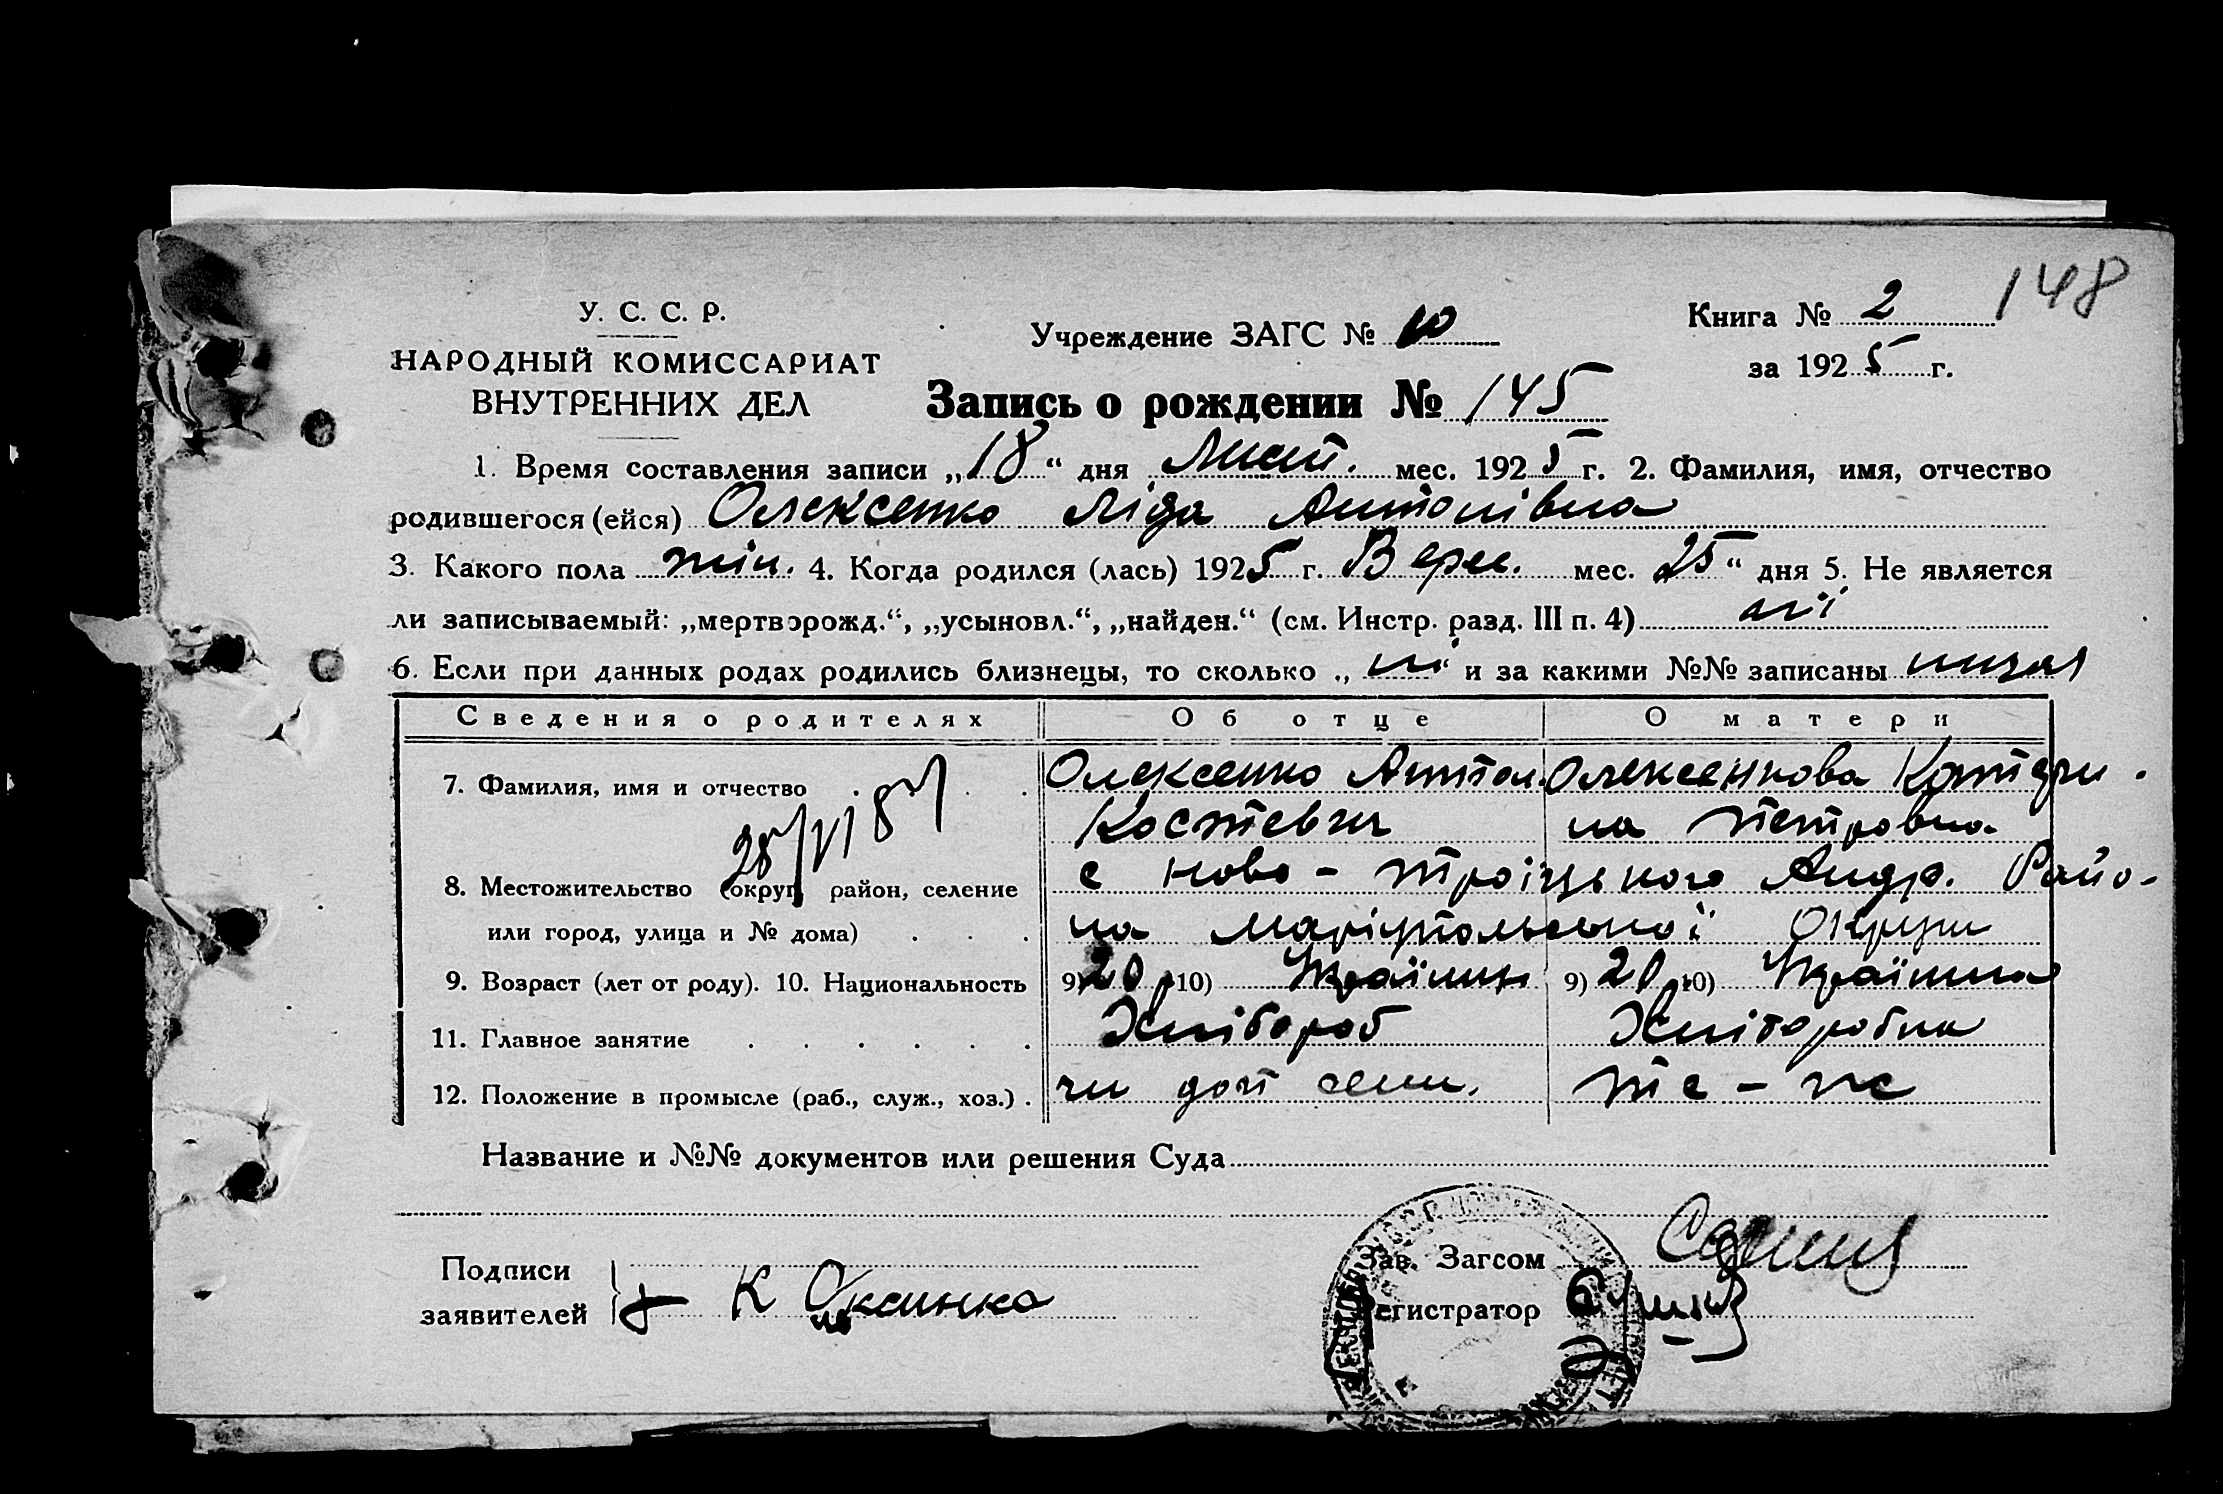 148
У. С. С. Р.
НАРОДНЫЙ КОМИССАРИАТ
ВНУТРЕННИХ ДЕЛ
Учреждение ЗАГС № 10
Книга № 2
за 1925 г.
Запись о рождении № 145
1. Время составления записи „18“ дня Лист. мес. 1925 г. 2. Фамилия, имя, отчество
родившегося (ейся) Олексенко Ліда Антонівна
3. Какого пола жін. 4. Когда родился (лась) 1925 г. Верес. мес. 25“ дня 5. Не является
ли записываемый: „мертворожд.“, „усыновл.“, „найден.“ (см. Инстр. разд. III п. 4) ні
6. Если при данных родах родились близнецы, то сколько „ ні“ и за какими №№ записаны
Сведения о родителях Об отце О матери
7. Фамилия, имя и отчество Олексенко Антон Олексенкова Катери-
Костевич на Петровна
8. Местожительство (округ, район, селение с Ново-Троіцького Андр. Райо-
или город, улица и № дома) на Маріупольської Округи
9. Возраст (лет от роду). 10. Национальность 9) 20 10) Україниц 9) 20 10) Українка
11. Главное занятие Хлібороб Хліборобка
12. Положение в промысле (раб., служ., хоз.) чл доп семи. те-же
Название и №№ документов или решения Суда
Подписи
заявителей К
Зав. Загсом
Регистратор